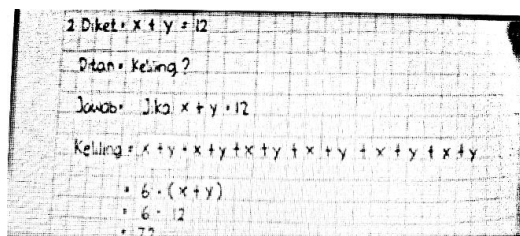 2. Diket : x + y = 12
Ditan : Keliling ?
Jawab : Jika x + y = 12
Keliling = x + y + x + y + x + y + x + y + x + y + x + y
= 6 · (x + y)
= 6 · 12
= 72